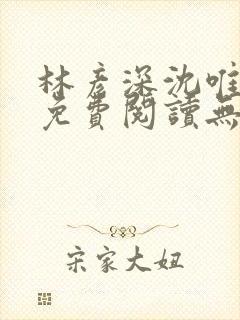 林彥深沈唯
免費閱讀無
宋家大妞